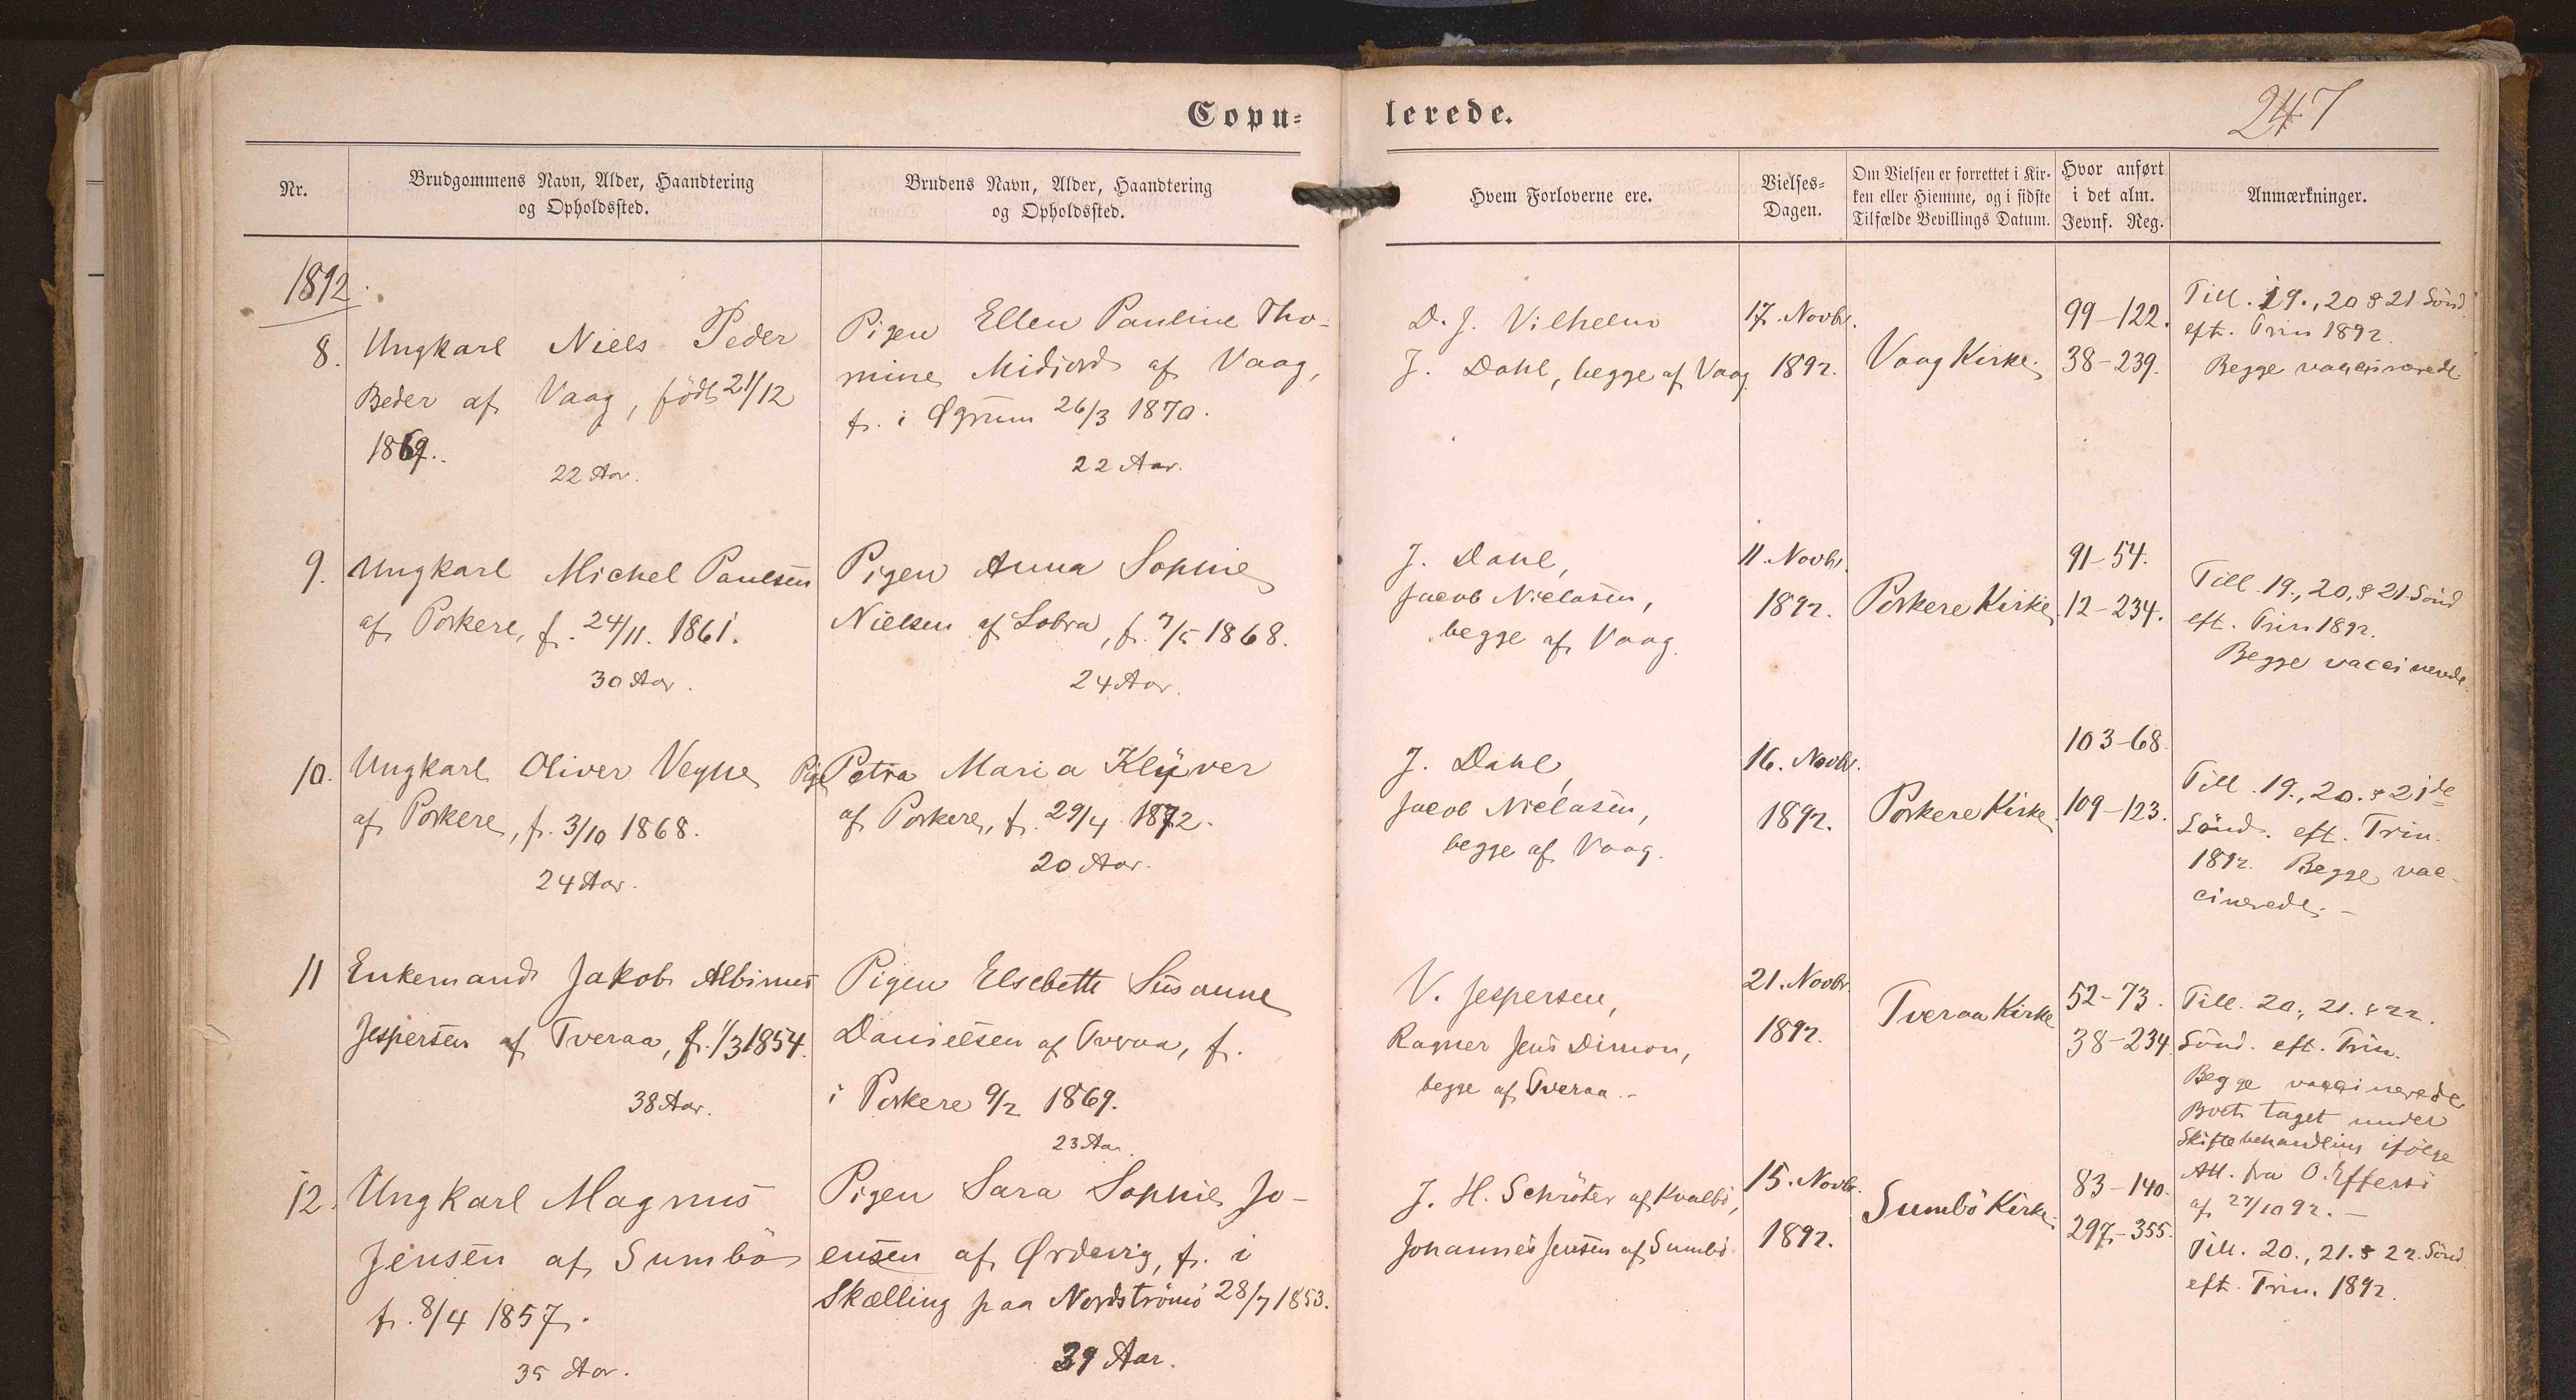 Copu=
lerede.
247
Nr.
Brudgommens Navn, Alder, Haandtering
og Opholdssted.
Brudens Navn, Alder, Haandtering
og Opholdssted.
Hvem Forloverne ere.
Vielses=
Dagen.
Om Vielsen er forrettet i Kir=
ken eller Hiemme, og i sidste
Tilfælde Bevillings Datum.
Hvor anført
i det alm.
Jevnf. Reg.
Anmærkninger.
1892.
8.
Ungkarl Niels Peder
Beder af Vaag, född 21/12
1869.
22 Aar.
Pigen Ellen Pauline Tho-
mine Midjord af Vaag,
f. i Øgrum 26/3 1870.
22 Aar.
D. J. Vilhelm
J. Dahl, begge af Vaag
17. Novbr.
1892.
Vaag Kirke.
99-122.
38-239.
Till. 19., 20 & 21 Sönd.
eft. Trin 1892.
Begge vaccinerede.
9.
Ungkarl Michel Paulsen
af Porkere, f. 24/11. 1861.
30 Aar.
Pigen Anna Sophie
Nielsen af Lobra, f. 7/5 1868.
24 Aar.
J. Dahl,
Jacob Nielasen,
begge af Vaag.
11. Novbr.
1892.
Porkere Kirke
91-54.
12-234.
Till. 19., 20, & 21. Sönd
eft. Trin 1892.
Begge vaccinerede.
10.
Ungkarl Oliver Veyhe
af Porkere, f. 3/10 1868.
24 Aar.
Pige Petra Maria Klÿver
af Porkere, f. 29/4 1872.
20 Aar.
J. Dahl,
Jacob Nielasen,
begge af Vaag.
16. Novbr.
1892.
Porkere Kirke
103-68.
109-123.
Till. 19., 20. & 21de
Sönd. eft. Trin.
1892. Begge vac-
cinerede. -
11
Enkemand Jakob Albinus
Jespersen af Tveraa, f. 1/3 1854.
38 Aar.
Pigen Elsebette Susanne
Danielsen af Tveraa, f.
i Porkere 9/2 1869.
23 Aar.
V. Jespersen,
Ragner Jens Dimon,
begge af Tveraa. -
21. Novbr.
1892.
Tveraa Kirke
52-73.
38-234.
Till. 20., 21. & 22.
Sönd. eft. Trin.
Begge vaccinerede
Boet taget under
Skiftebehandling ifölge
Att. fra O. Effersö
af 27/10 92. -
12.
Ungkarl Magnus
Jensen af Sumbö
f. 8/4 1857.
35 Aar.
Pigen Sara Sophie Jo-
ensen af Ørdevig, f. i
Skælling paa Nordströmö 28/7 1853.
39 Aar.
J. H. Schröter af Kvalbö,
Johannes Jensen af Sumbö.
15. Novbr.
1892.
Sumbö Kirke.
83-140.
297-355.
Till. 20., 21. & 22. Sönd.
eft. Trin. 1892.